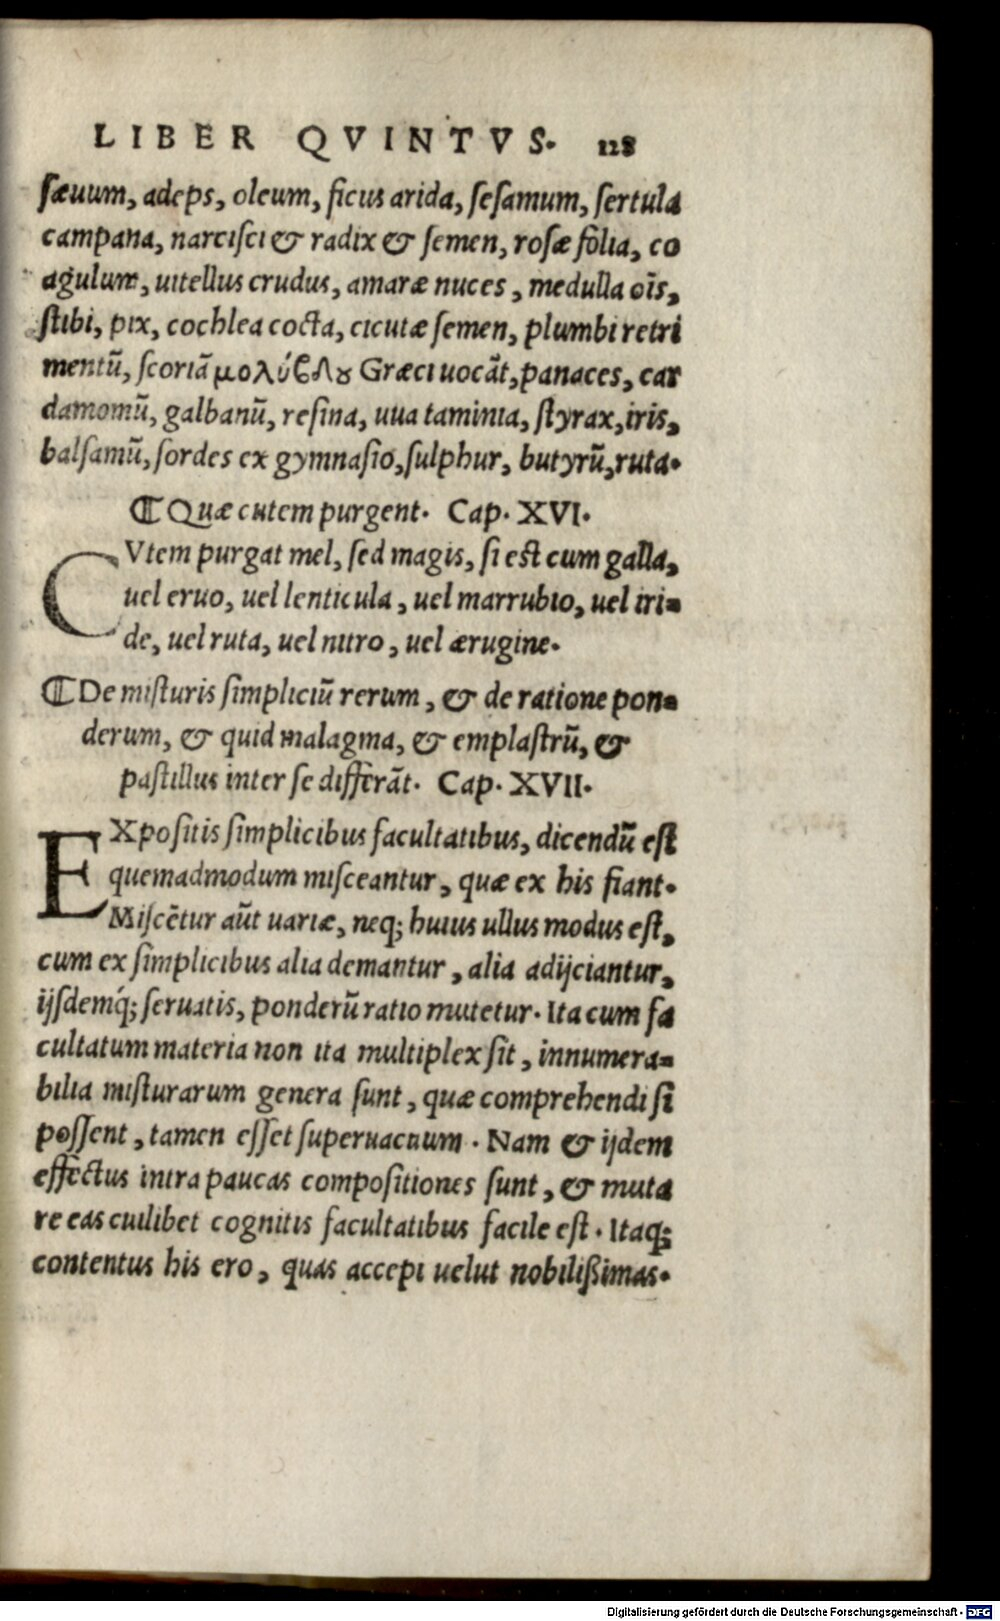 LIBER QVINTVS. 128
sæuum, adeps, oleum, ficus arida, sesamum, sertula
campana, narcisci & radix & semen, rosæ folia, co
agulum, uitellus crudus, amaræ nuces, medulla oīs,
stibi, pix, cochlea cocta, cicutæ semen, plumbi retri
mentū, scoriā μολύβδȣ Græci uocāt, panaces, car
damomū, galbanū, resina, uua taminia, styrax, iris,
balsamū, sordes ex gymnasio, sulphur, butyrū, ruta.
¶ Quæ cutem purgent. Cap. XVI.
CVtem purgat mel, sed magis, si est cum galla,
uel eruo, uel lenticula, uel marrubio, uel iri-
de, uel ruta, uel nitro, uel ærugine.
¶ De misturis simpliciū rerum, & de ratione pon-
derum, & quid malagma, & emplastrū, &
pastillus inter se differāt. Cap. XVII.
EXpositis simplicibus facultatibus, dicendū est
quemadmodum misceantur, quæ ex his fiant.
Miscētur aūt uariæ, neq; huius ullus modus est,
cum ex simplicibus alia demantur, alia adijciantur,
ijsdemq́; seruatis, ponderū ratio mutetur. Ita cum fa
cultatum materia non ita multiplex sit, innumera-
bilia misturarum genera sunt, quæ comprehendi si
possent, tamen esset superuacuum. Nam & ijdem
effectus intra paucas compositiones sunt, & muta
re eas cuilibet cognitis facultatibus facile est. Itaq;
contentus his ero, quas accepi uelut nobilißimas.
Digitalisierung gefördert durch die Deutsche Forschungsgemeinschaft - DFG